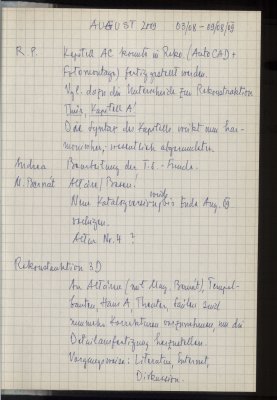 AUGUST 2009 03/08 - 09/08/09
R P. Kapitell AC konnte in Reko. (AutoCAD +
Fotomontage) fertiggestellt werden.
Vgl. dazu die Unterschiede zur Rekonstruktion
Thür, Kapitell A!
Die Syntax des Kapitells wirkt nun har-
monischer, wesentlich abgerundeter.
Andrea Bearbeitung der T.E.-Funde.
M. Bernát Altäre / Basen.
Neue Katalogversion wird bis Ende Aug. 09
vorliegen.
Altar Nr. 4 ?
Rekonstruktion 3D
An Altären (mit Mag. Bernát), Tempel-
bauten, Haus A, Theater, Säulen sind
nunmehr Korrekturen vorzunehmen, um die
Detailanfertigung herzustellen.
Vorgangsweise: Literatur, Internet,
Diskussion.